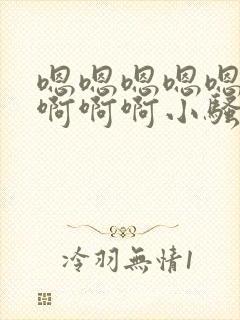 嗯嗯嗯嗯嗯
啊啊啊小骚
冷羽無情1